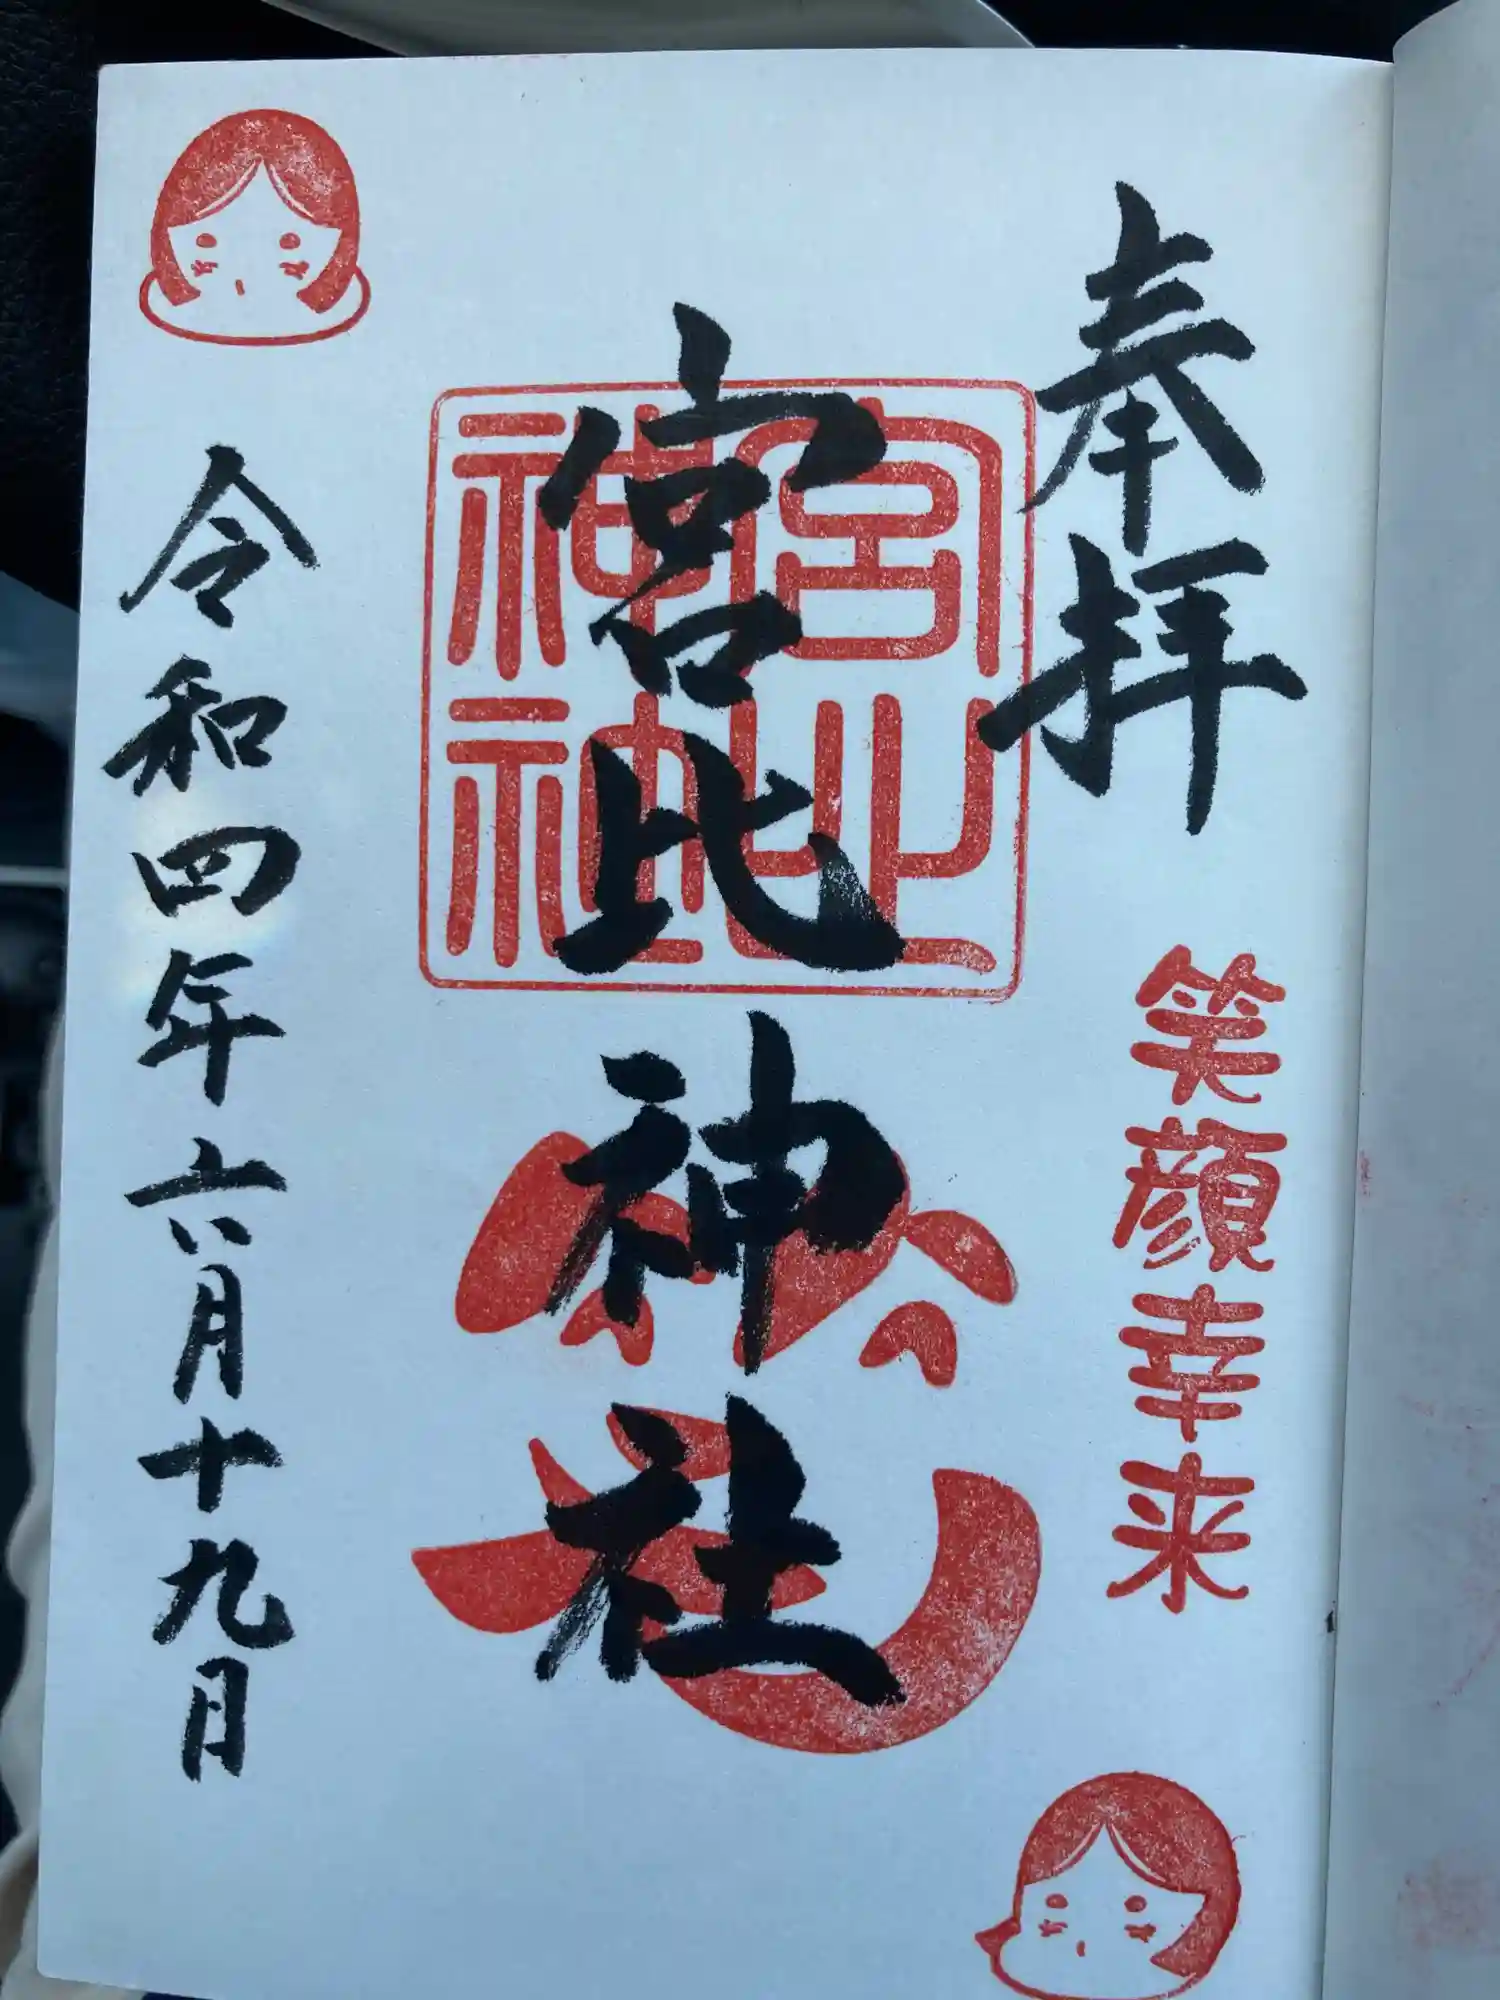 奉拝
笑顔幸来
宮比神社
宮比
神社
令和四年六月十九月